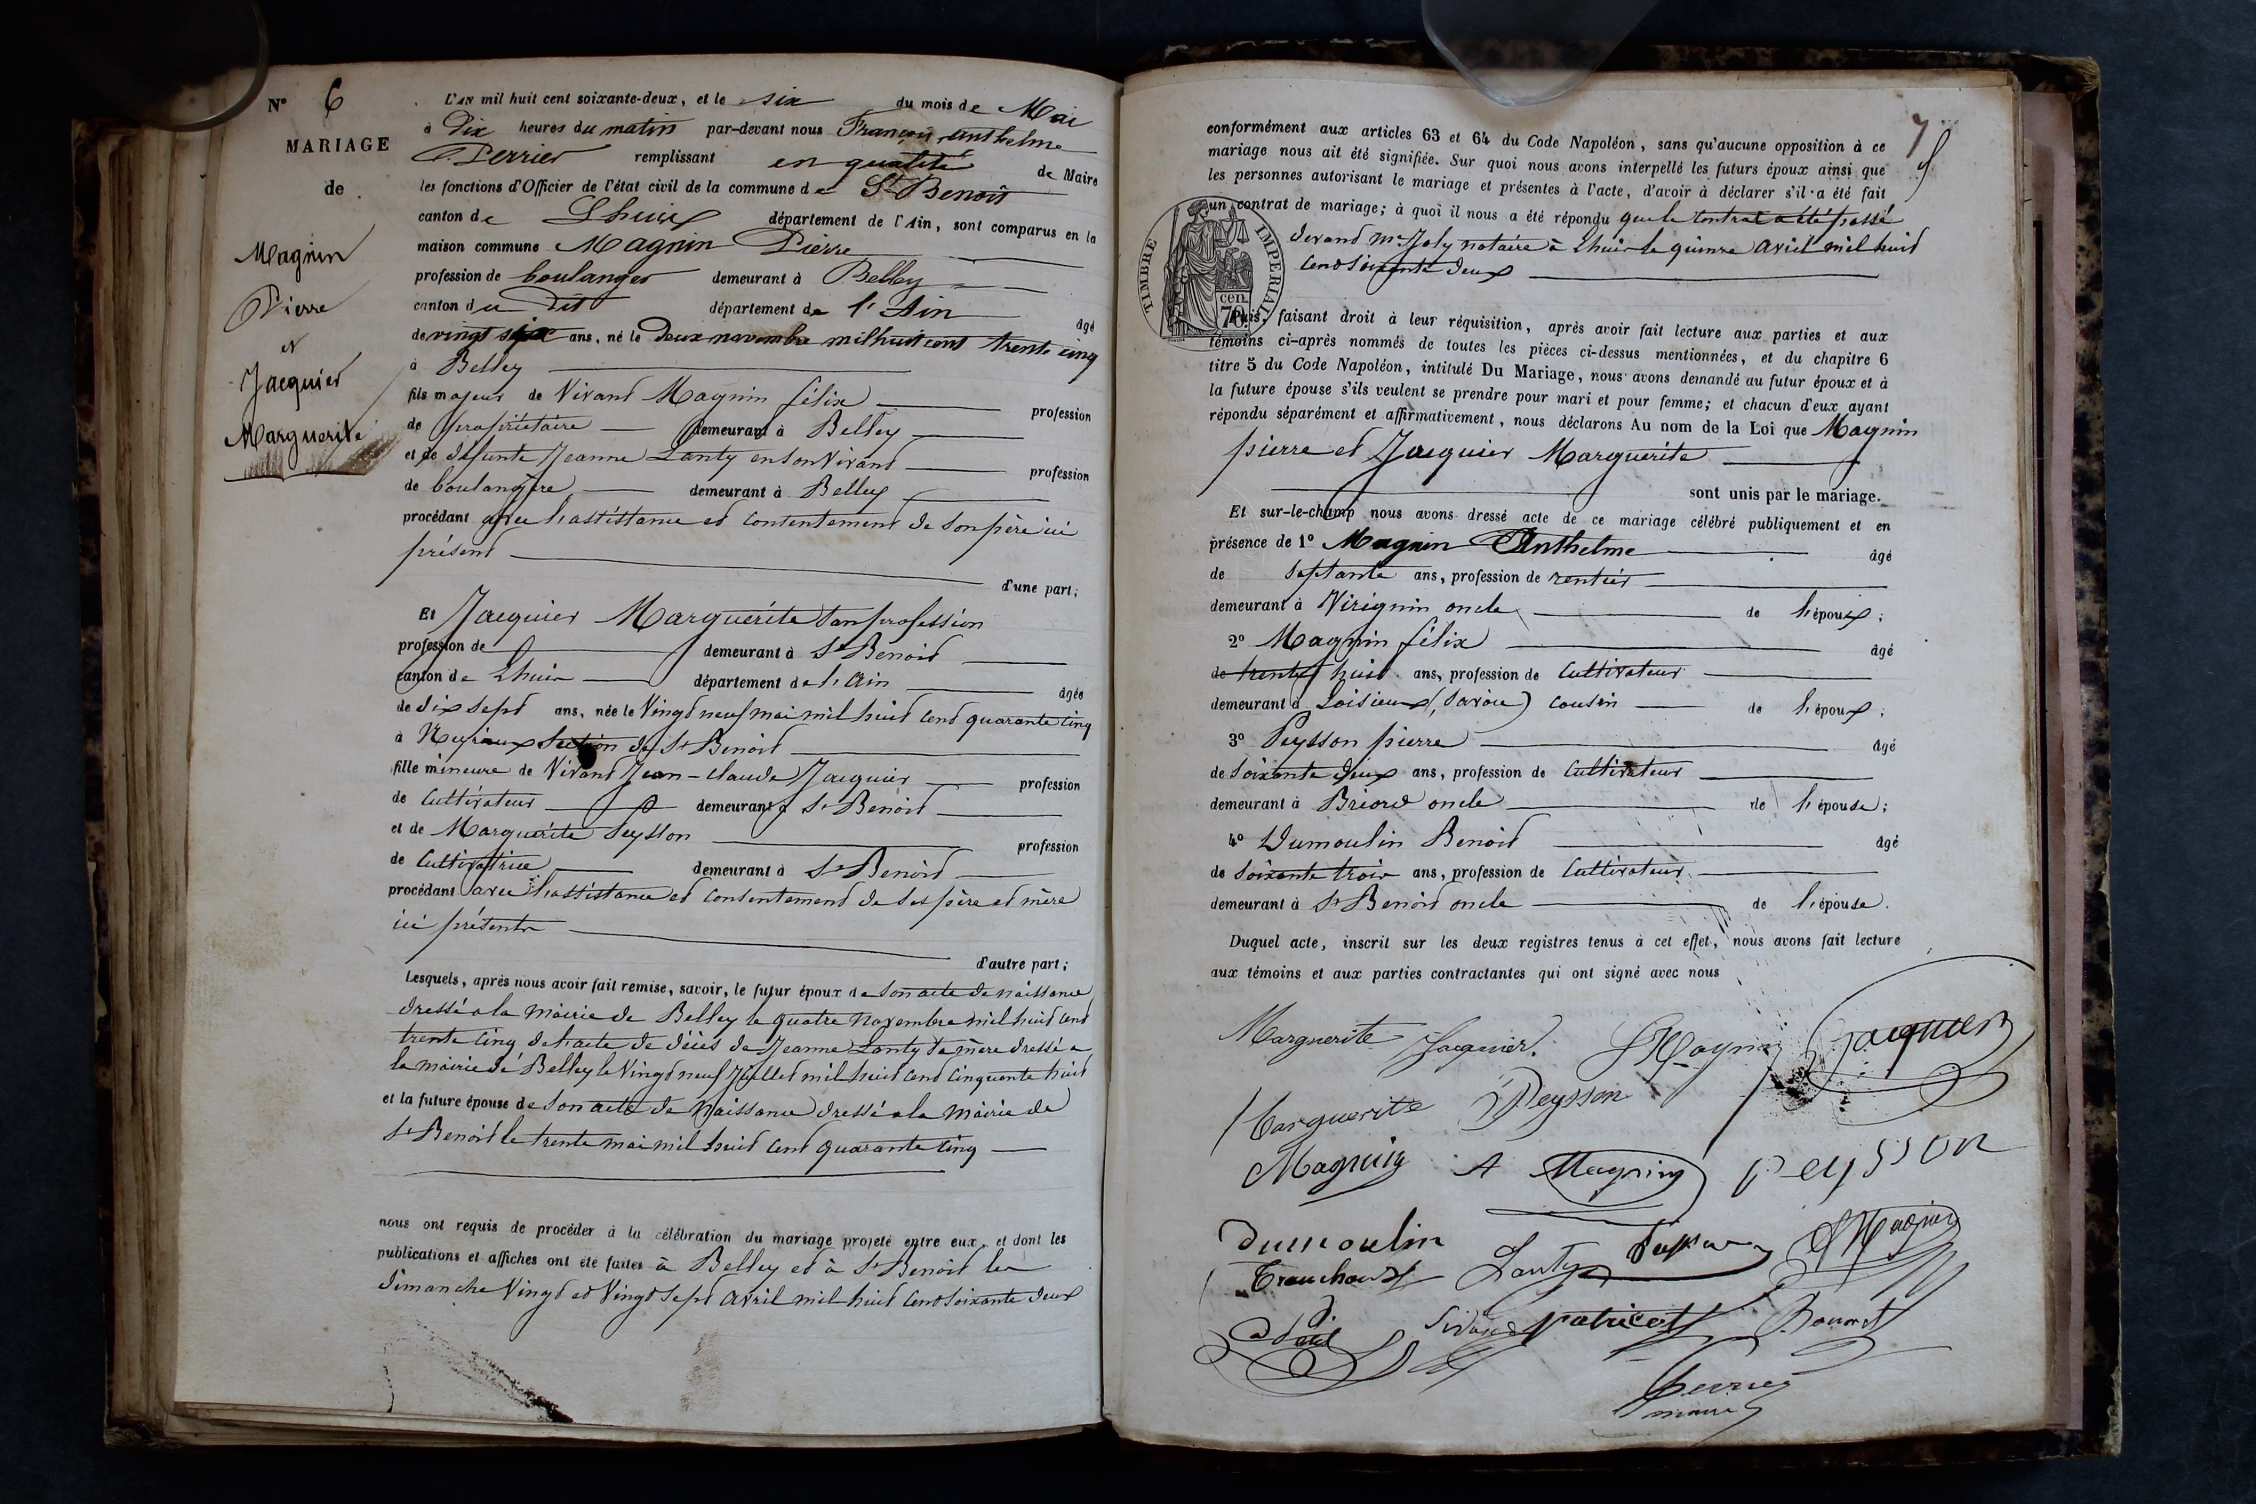 N° 6
MARIAGE
de
Magnin
Pierre
et
Jacquier
Marguerite
L'AN mil huit cent soixante-deux, et le six du mois de Mai
à Dix heures du matin par-devant nous François Anthelme
Perrier remplissant en qualité de Maire
les fonctions d'Officier de l'état civil de la commune de St Benoit
canton de Lhuis département de l'Ain, sont comparus en la
maison commune Magnin Pierre
profession de boulanger demeurant à Belley
canton du dit département de l'Ain âgé
de vingt six ans, né le Deux novembre mil huit cent trente cinq
à Belley
fils majeur de Vivant Magnin félix profession
de propriétaire demeurant à Belley
et de défunte Jeanne Lanty en son Vivant profession
de boulangère demeurant à Belley
procédant avec l'assistance et consentement de son père ici
présent
d'une part;
Et Jacquier Marguerite san profession
profession de demeurant à St Benoit
canton de Lhuis département de l'Ain âgée
de dix sept ans, née le Vingt neuf mai mil huit cent quarante cinq
à section de St Benoit
fille mineure de Vivant Jean-Claude Jacquier profession
de Cultivateur demeurant à St Benoit
et de Marguerite Peysson profession
de Cultivatrice demeurant à St Benoit
procédant avec l'assistance et consentement de ses père et mère
ici présents
d'autre part;
Lesquels, après nous avoir fait remise, savoir, le futur époux de son acte de naissance
dressé a la Mairie de Belley le quatre Novembre mil huit cent
trente cinq de l'acte de décès de Jeanne Lanty sa mère dressé a
la mairie de Belley le Vingt neuf Juillet mil huit cent cinquante huit
et la future épouse de son acte de Naissance dressé a la Mairie de
St Benoit le trente mai mil huit cent quarante cinq
nous ont requis de procéder à la célébration du mariage projeté entre eux, et dont les
publications et affiches ont été faites à Belley et à St Benoit les
Dimanche Vingt et Vingt sept avril mil huit cent soixante deux
7
conformément aux articles 63 et 64 du Code Napoléon, sans qu'aucune opposition à ce
mariage nous ait été signifiée. Sur quoi nous avons interpellé les futurs époux ainsi que
les personnes autorisant le mariage et présentes à l'acte, d'avoir à déclarer s'il a été fait
un contrat de mariage; à quoi il nous a été répondu que le contrat a été passé
devand Me Joly notaire à Lhuis le quinze avril mil huit
cent soixante deux
TIMBRE IMPERIAL
70 cen.
Puis, faisant droit à leur réquisition, après avoir fait lecture aux parties et aux
témoins ci-après nommés de toutes les pièces ci-dessus mentionnées, et du chapitre 6
titre 5 du Code Napoléon, intitulé Du Mariage, nous avons demandé au futur époux et à
la future épouse s'ils veulent se prendre pour mari et pour femme; et chacun d'eux ayant
répondu séparément et affirmativement, nous déclarons Au nom de la Loi que Magnin
pierre et Jacquier Marguerite
sont unis par le mariage.
Et sur-le-champ nous avons dressé acte de ce mariage célébré publiquement et en
présence de 1° Magnin Anthelme âgé
de septante ans, profession de rentier
demeurant à Virignin oncle de l'époux;
2° Magnin félix âgé
de trente huit ans, profession de Cultivateur
demeurant à Loisieux (Savoie) cousin de l'époux;
3° Peysson pierre âgé
de soixante deux ans, profession de Cultivateur
demeurant à Briord oncle de l'épouse;
4° Dumoulin Benoit âgé
de soixante trois ans, profession de Cultivateur
demeurant à St Benoit oncle de l'épouse.
Duquel acte, inscrit sur les deux registres tenus à cet effet, nous avons fait lecture
aux témoins et aux parties contractantes qui ont signé avec nous
Marguerite Jacquier. Magnin Jacquier
Marguerite Peysson
Magnin A Magnin peysson
Dumoulin Lanty Peysson Magnin
patricot
Perrier
maire